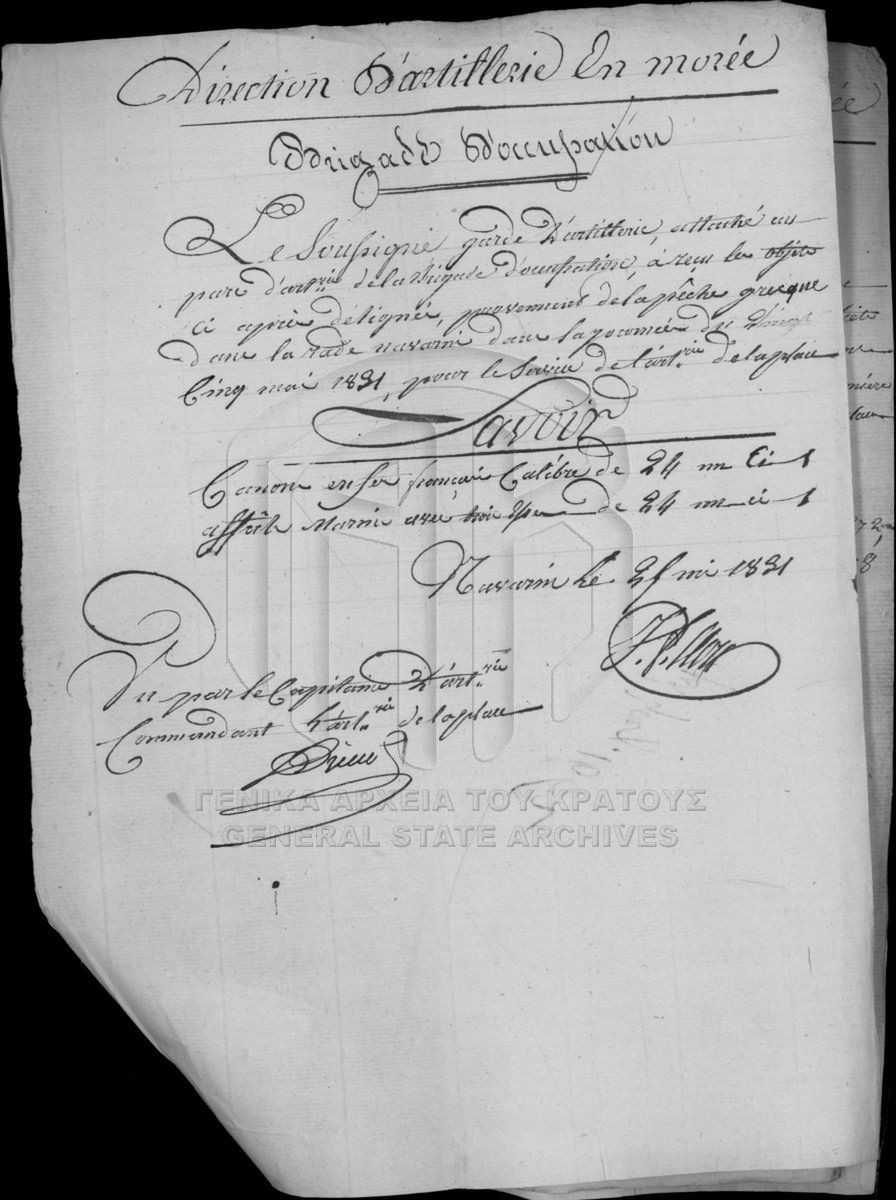 Direction D'artillerie En morée
Brigade D'occupation
Le Soussigné garde D'artillerie, attaché au
parc d'art.rie de la Brigade D'occupation, à reçu les objets
ci après désigné, provenent de la pêche grecque
Dans la rade navarin dans la journée du Vingt
Cinq mai 1831, pour le Service de l'art.rie de la place
Savoir
Canons en fer français Calibre de 24 un Ci 1
affûts Marin avec de 24 un ci 1
Navarin le 25 mai 1831
Vu par le Capitaine D'art.rie
Commandant L'art.rie de la place
ΓΕΝΙΚΑ ΑΡΧΕΙΑ ΤΟΥ ΚΡΑΤΟΥΣ
GENERAL STATE ARCHIVES